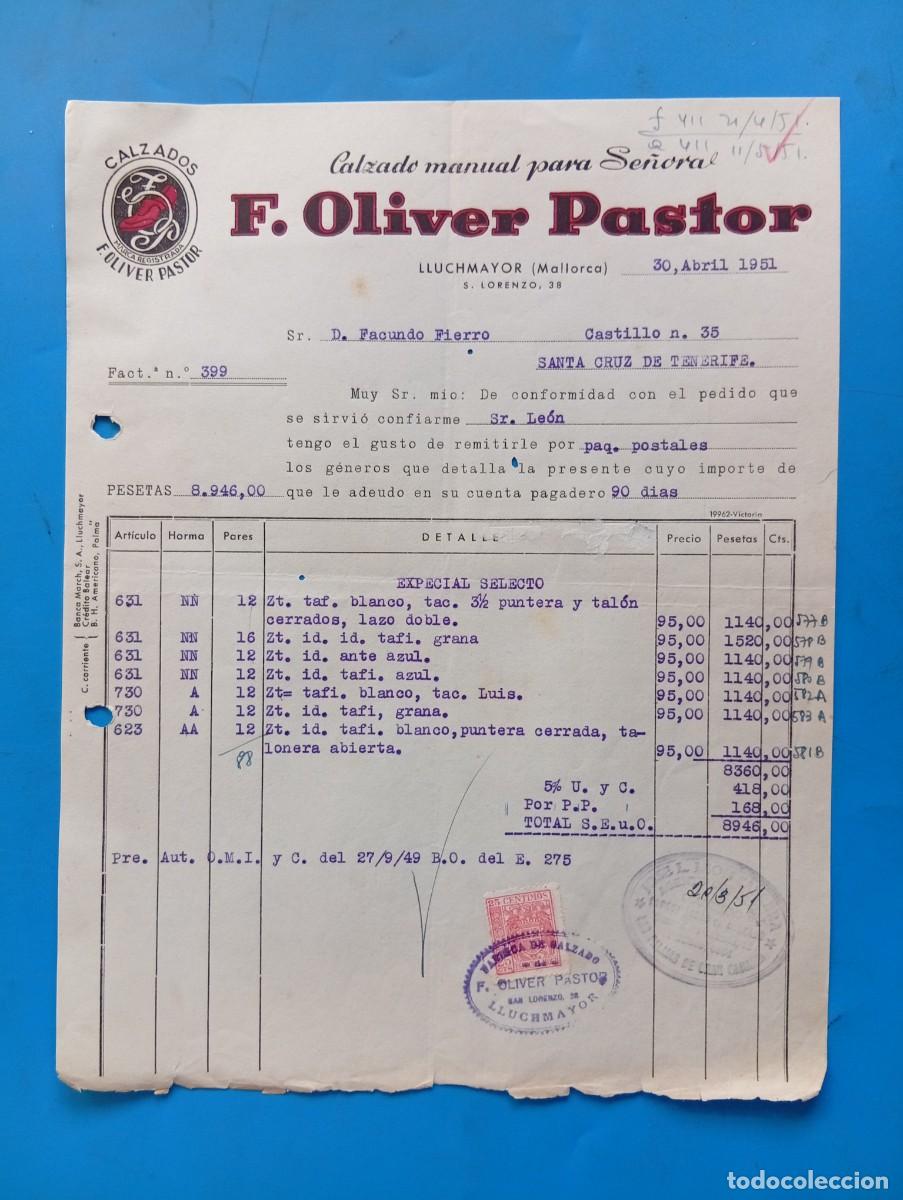 f 411 21/4/51.
a 411 11/5/51.
CALZADOS
MARCA REGISTRADA
F. OLIVER PASTOR
Calzado manual para Señora
F. Oliver Pastor
LLUCHMAYOR (Mallorca) 30, Abril 1951
S. LORENZO, 38
Sr. D. Facundo Fierro Castillo n. 35
SANTA CRUZ DE TENERIFE.
Fact.ª n.º 399
Muy Sr. mio: De conformidad con el pedido que
se sirvió confiarme Sr. León
tengo el gusto de remitirle por paq. postales
los géneros que detalla la presente cuyo importe de
PESETAS 8.946,00 que le adeudo en su cuenta pagadero 90 dias
19962-Victoria
C. corriente
Banca March, S. A., Lluchmayor
Crédito Balear
B. H. Americano, Palma
Artículo Horma Pares DETALLE Precio Pesetas Cts.
EXPECIAL SELECTO
631 NN 12 Zt. taf. blanco, tac. 3½ puntera y talón
cerrados, lazo doble. 95,00 1140,00 577 B
631 NN 16 Zt. id. id. tafi. grana 95,00 1520,00 578 B
631 NN 12 Zt. id. ante azul. 95,00 1140,00 579 B
631 NN 12 Zt. id. tafi. azul. 95,00 1140,00 580 B
730 A 12 Zt= tafi. blanco, tac. Luis. 95,00 1140,00 582 A
730 A 12 Zt. id. tafi, grana. 95,00 1140,00 583 A
623 AA 12 Zt. id. tafi. blanco, puntera cerrada, ta-
lonera abierta. 95,00 1140,00 581 B
88
8360,00
5% U. y C. 418,00
Por P.P. 168,00
TOTAL S.E.u.O. 8946,00
Pre. Aut. O.M.I. y C. del 27/9/49 B.O. del E. 275
25 CENTIMOS
FABRICA DE CALZADO
DE
F. OLIVER PASTOR
SAN LORENZO, 38
LLUCHMAYOR
todocoleccion